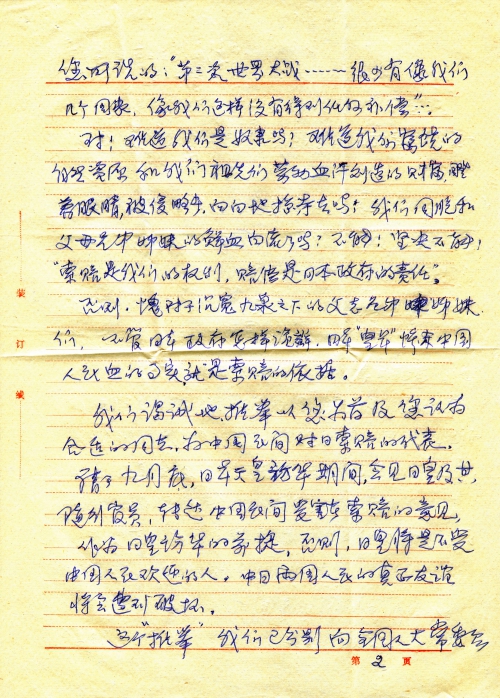 您所说的:"第二次世界大战……很少有像我们
几个国家,像我们这样没有得到任何补偿"…
对!难道我们是奴隶吗?难道我们富饶的
自然资源和我们祖先们劳动血汗创造的财富,瞪
着眼睛,被侵略者,白白地掠夺去吗?我们同胞和
父母兄弟姊妹的鲜血白流了吗?不能!坚决不能!
"索赔是我们的权利,赔偿是日本政府的责任"。
否则,愧对于沉冤九泉之下的父老兄弟姊妹
们,不管日本政府怎样诡辩,日军"皇军"屠杀中国
人民血的事实就是索赔的依据。
我们竭诚地推举以您为首及您认为
合适的同志,为中国民间对日索赔的代表。
请于九月底,日本天皇访华期间,会见日皇及其
随列官员,转达中国民间受害者索赔的意见,
作为日皇访华的前提,否则,日皇将是不受
中国人民欢迎的人。中日两国人民的真正友谊
将会遭到破坏。
这个"推举"我们已分别向全国人大常委会
第 2 页
装
订
线